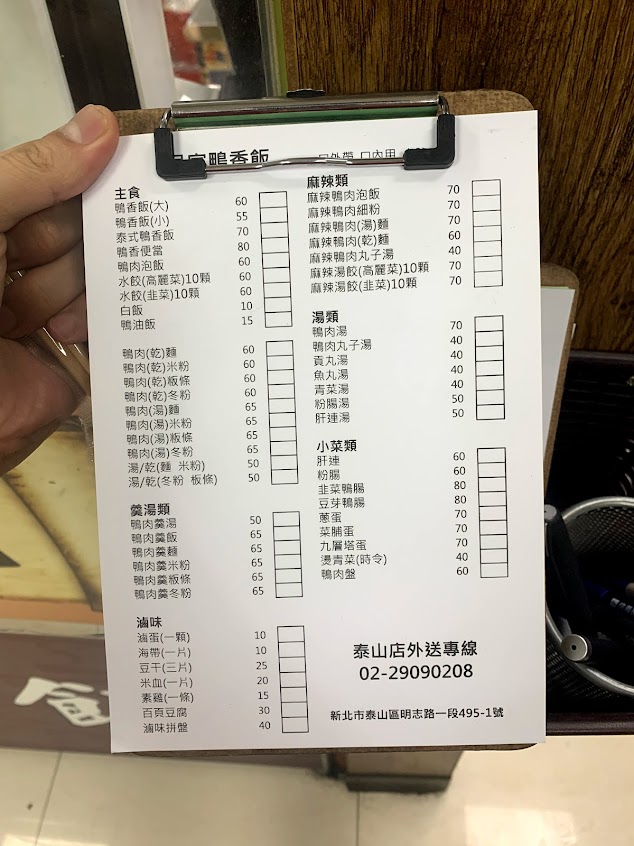 鴨香飯
口外帶 口內用
主食
鴨香飯(大) 60
鴨香飯(小) 55
泰式鴨香飯 70
鴨香便當 80
鴨肉泡飯 60
水餃(高麗菜)10顆 60
水餃(韭菜)10顆 60
白飯 10
鴨油飯 15
鴨肉(乾)麵 60
鴨肉(乾)米粉 60
鴨肉(乾)板條 60
鴨肉(乾)冬粉 60
鴨肉(湯)麵 65
鴨肉(湯)米粉 65
鴨肉(湯)粄條 65
鴨肉(湯)冬粉 65
湯/乾(麵 米粉) 50
湯/乾(冬粉 板條) 50
羹湯類
鴨肉羹湯 50
鴨肉羹飯 65
鴨肉羹麵 65
鴨肉羹米粉 65
鴨肉羹粄條 65
鴨肉羹冬粉 65
滷味
滷蛋(一顆) 10
海帶(一片) 10
豆干(三片) 25
米血(一片) 20
素雞(一條) 15
百頁豆腐 30
滷味拼盤 40
麻辣類
麻辣鴨肉泡飯 70
麻辣鴨肉細粉 70
麻辣鴨肉(湯)麵 70
麻辣鴨肉(乾)麵 60
麻辣鴨肉丸子湯 40
麻辣湯餃(高麗菜)10顆 70
麻辣湯餃(韭菜)10顆 70
湯類
鴨肉湯 70
鴨肉丸子湯 40
貢丸湯 40
魚丸湯 40
青菜湯 40
粉腸湯 50
肝連湯 50
小菜類
肝連 60
粉腸 60
韭菜鴨腸 80
豆芽鴨腸 80
蔥蛋 70
菜脯蛋 70
九層塔蛋 70
燙青菜(時令) 40
鴨肉盤 60
泰山店外送專線
02-29090208
新北市泰山區明志路一段495-1號